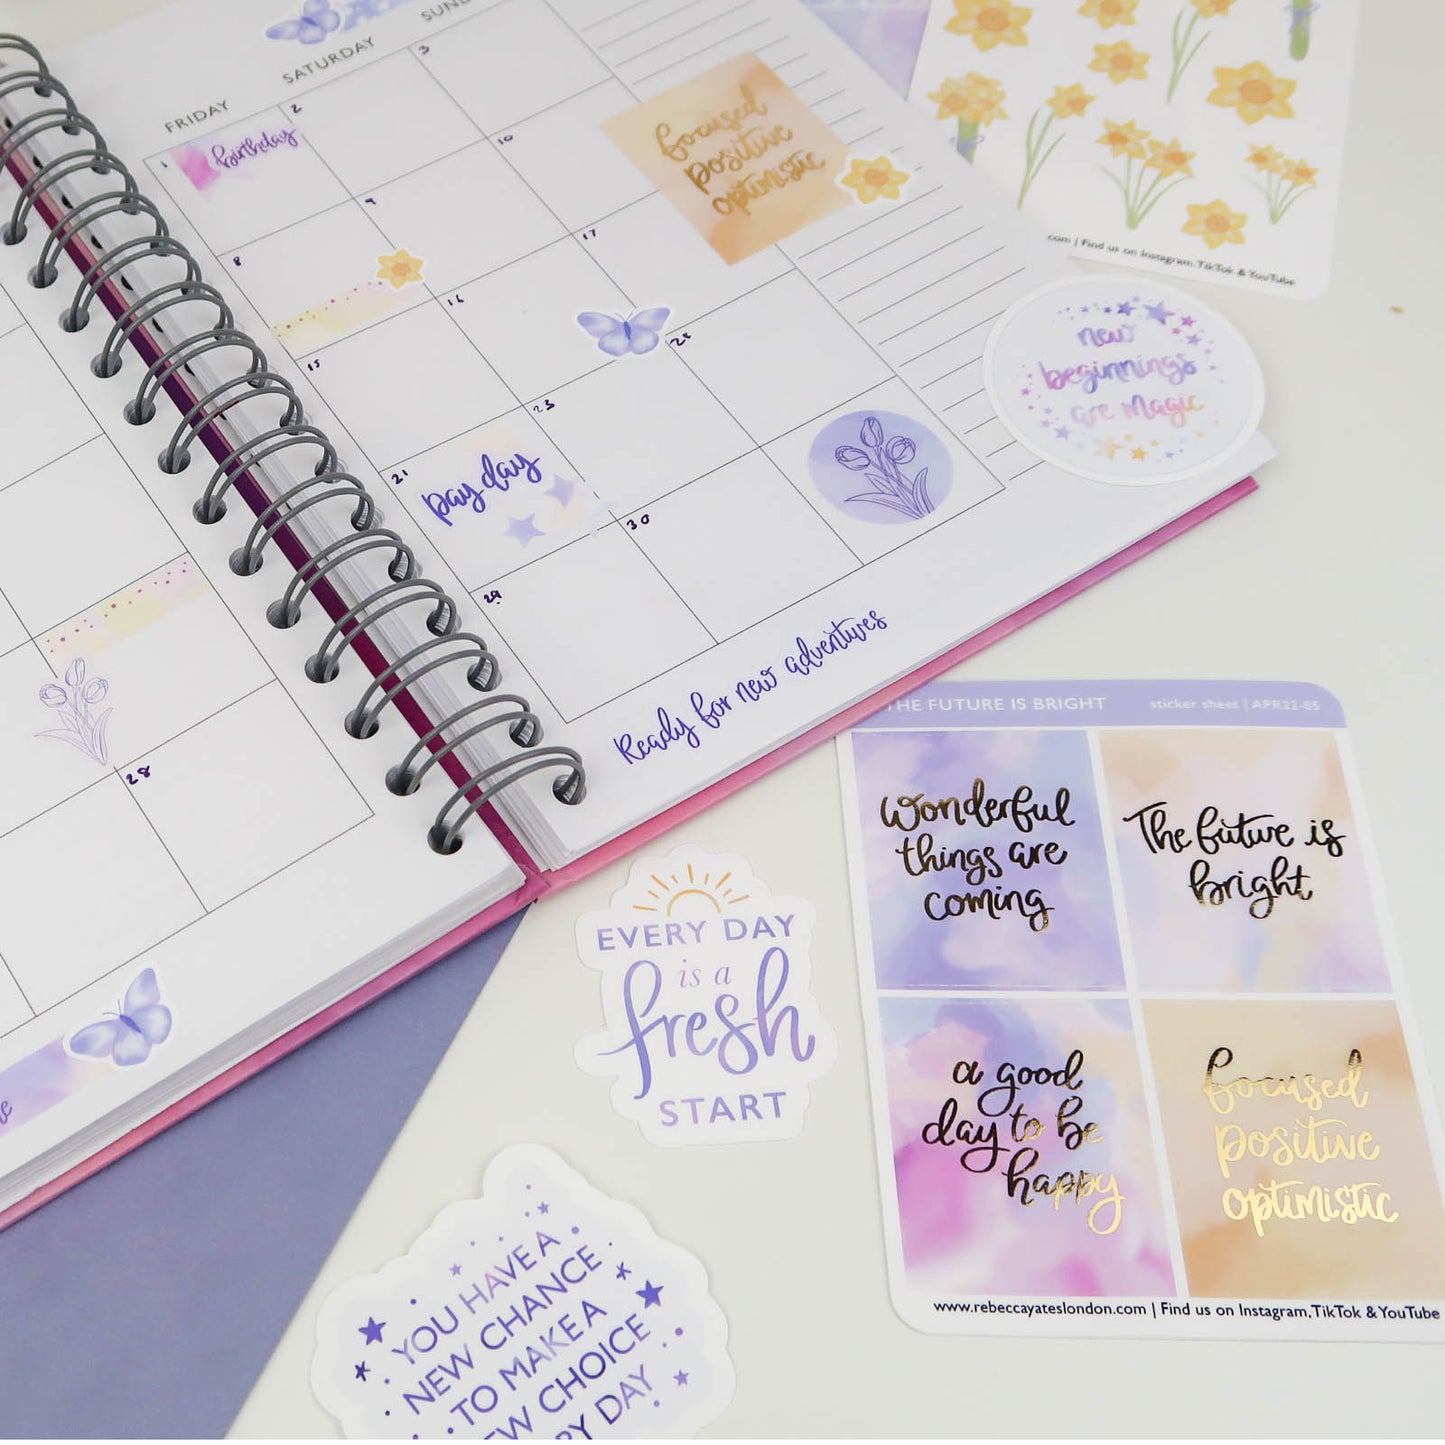 FRIDAY
SATURDAY
1
birthday
2
3
8
9
10
15
16
17
21
payday
23
28
29
30
focused
positive
optimistic
Ready for new adventures
28
.com | Find us on Instagram,TikTok & YouTube
new
beginnings
are magic
THE FUTURE IS BRIGHT
sticker sheet | APR22-05
Wonderful
things are
coming
The future is
bright
a good
day to be
happy
focused
positive
optimistic
www.rebeccayateslondon.com | Find us on Instagram,TikTok & YouTube
EVERY DAY
is a
fresh
START
YOU HAVE A
NEW CHANCE
TO MAKE A
CHOICE
DAY